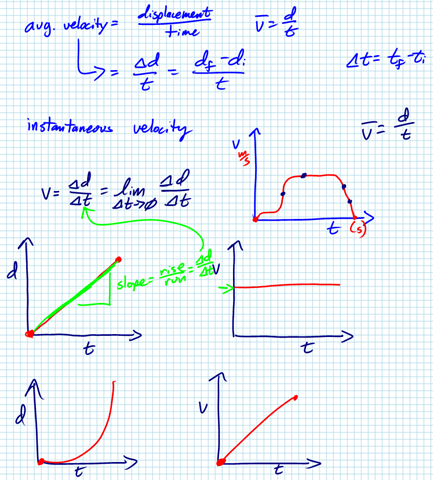 avg. velocity = displacement/time  v̅ = d/t
= Δd/t = (d_f - d_i)/t  Δt = t_f - t_i
instantaneous velocity  v̅ = d/t
v = Δd/Δt = lim Δt→0 Δd/Δt
v
m/s
t (s)
d
slope = rise/run = Δd/Δt
t
v
t
d
t
v
t